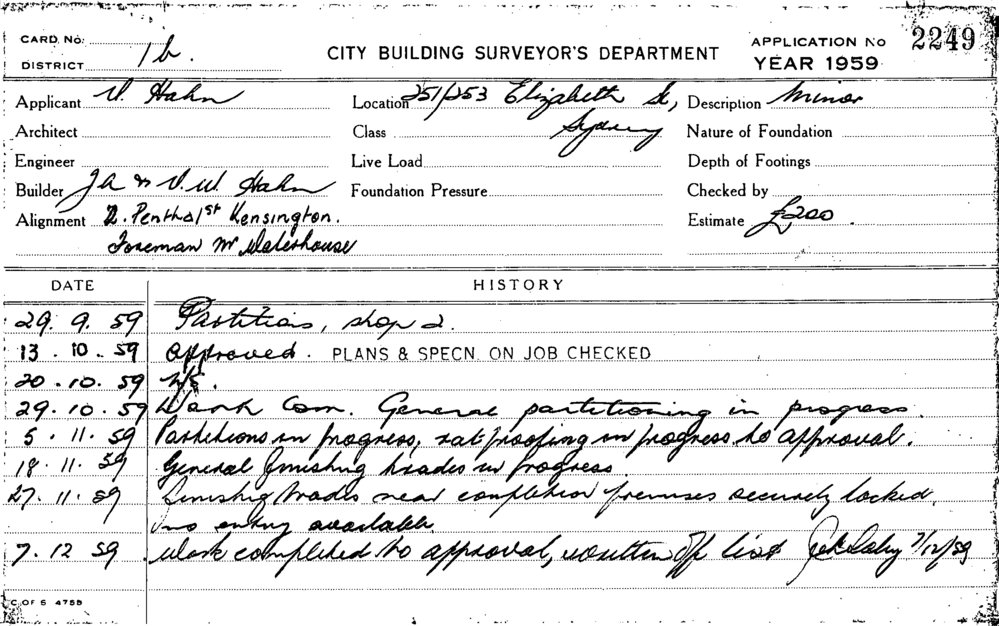 CARD. No.
DISTRICT 1b.
CITY BUILDING SURVEYOR'S DEPARTMENT
APPLICATION No 2249
YEAR 1959
Applicant V. Hahn
Location 251/253 Elizabeth St, Sydney
Description Minor
Architect
Class
Nature of Foundation
Engineer
Live Load
Depth of Footings
Builder J A & V. W. Hahn
Foundation Pressure
Checked by
Alignment 2. Penthal St Kensington.
Estimate £200.
Foreman Mr Waterhouse
DATE HISTORY
29. 9. 59 Partitions, shop 2.
13. 10. 59 Approved. PLANS & SPECN. ON JOB CHECKED
20. 10. 59 N/S.
29. 10. 59 Work Com. General partitioning in progress.
5. 11. 59 Partitions in progress, rat proofing in progress to approval.
18. 11. 59 General finishing trades in progress.
27. 11. 59 Finishing trades near completion premises securely locked,
no entry available
7. 12 59. Work completed to approval, written off list 7/12/59
C. OF S 4755